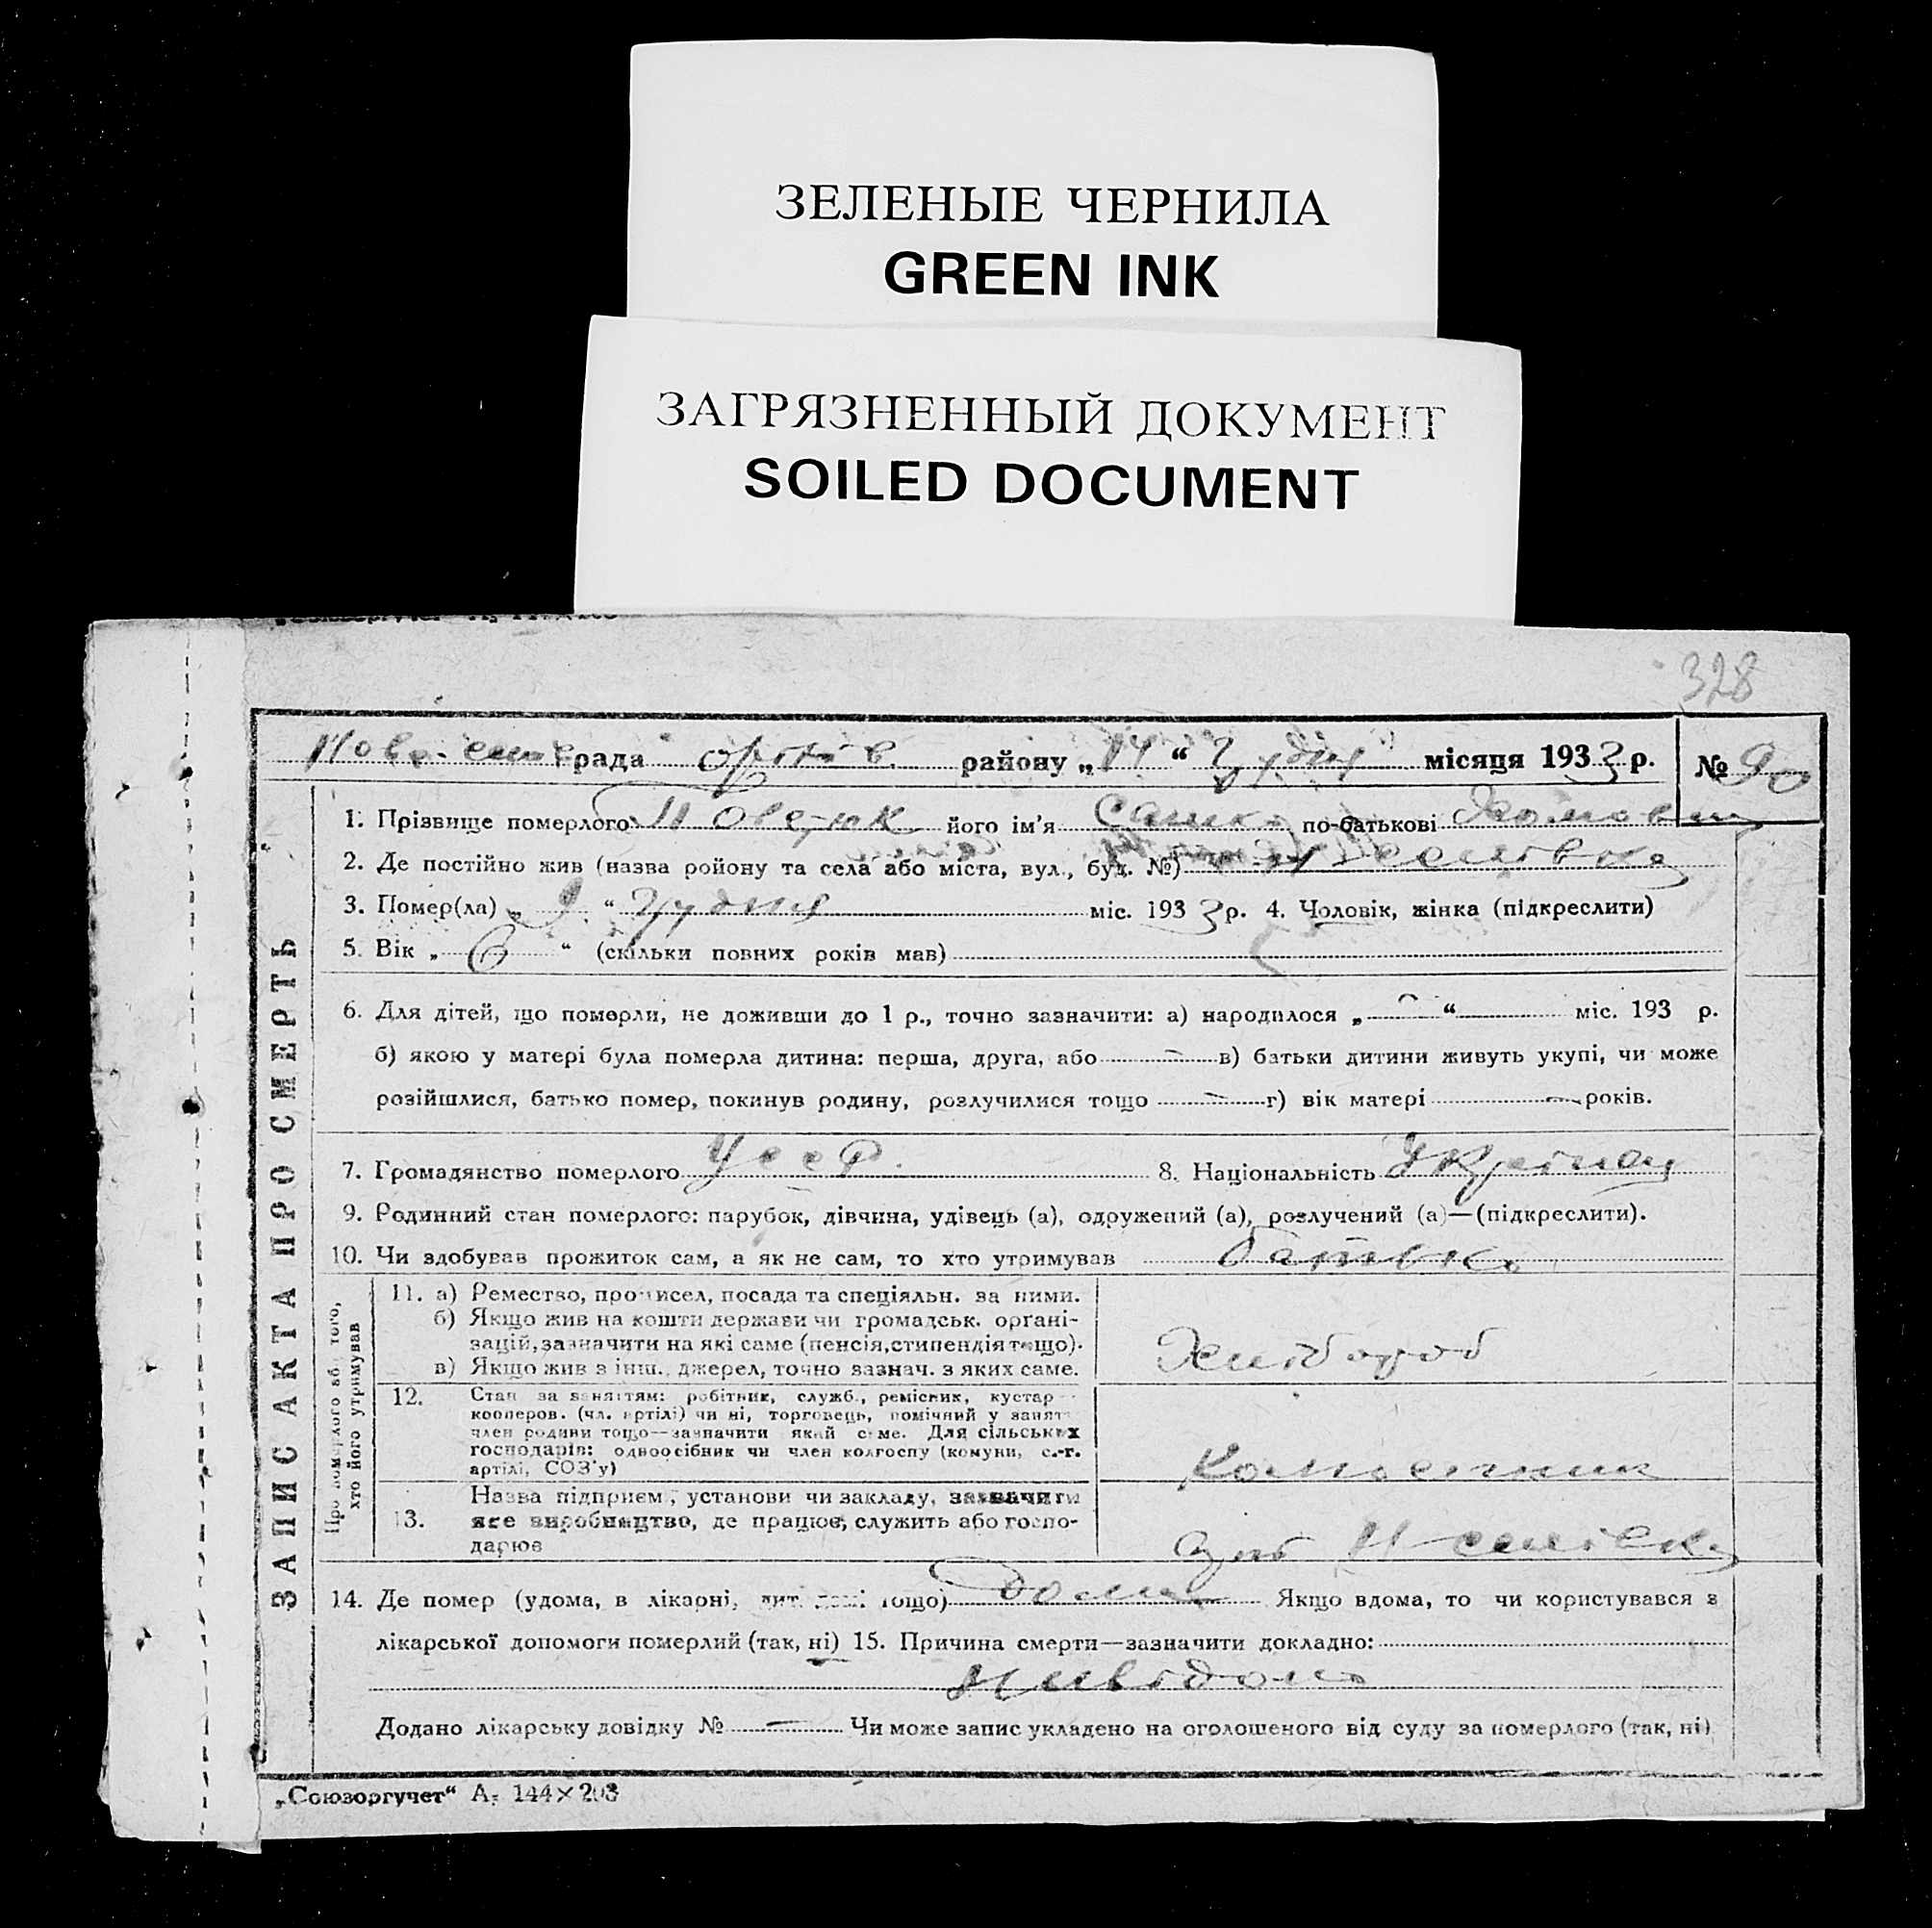 ЗЕЛЕНЫЕ ЧЕРНИЛА
GREEN INK
ЗАГРЯЗНЕННЫЙ ДОКУМЕНТ
SOILED DOCUMENT
328
рада району „14“ Грудня місяця 1933 р. № 90
1. Прізвище померлого його ім'я Сашко по-батькові Хомович
2. Де постійно жив (назва ройону та села або міста, вул., буд. №)
3. Помер(ла) „9“ Грудня міс. 1933 р. 4. Чоловік, жінка (підкреслити)
5. Вік „6“ (скільки повних років мав)
6. Для дітей, що померли, не доживши до 1 р., точно зазначити: а) народилося „ “ міс. 193 р.
б) якою у матері була померла дитина: перша, друга, або — в) батьки дитини живуть укупі, чи може
розійшлися, батько помер, покинув родину, розлучилися тощо — г) вік матері — років.
7. Громадянство померлого УССР. 8. Національність
9. Родинний стан померлого: парубок, дівчина, удівець (а), одружений (а), розлучений (а)—(підкреслити).
10. Чи здобував прожиток сам, а як не сам, то хто утримував батько
ЗАПИС АКТА ПРО СМЕРТЬ
Про померлого аб. того,
хто його утримував
11. а) Ремество, промисел, посада та спеціяльн. за ними.
б) Якщо жив на кошти держави чи громадськ. орґані-
зацій, зазначити на які саме (пенсія, стипендія тощо).
в) Якщо жив з інш. джерел, точно зазнач. з яких саме.
Хлібороб
12. Стан за заняттям: робітник, служб., ремісник, кустар
кооперов. (чл. артілі) чи ні, торговець, помічний у занят
член родини тощо—зазначити який саме. Для сільських
господарів: одноосібник чи член колгоспу (комуни, с.-г.
артілі, СОЗ'у)
13. Назва підприєм., установи чи закладу, зазначити
яке виробництво, де працює, служить або госпо-
дарює
14. Де помер (удома, в лікарні, дит. домі тощо) дома Якщо вдома, то чи користувався з
лікарської допомоги померлий (так, ні) 15. Причина смерти—зазначити докладно:
Невідомо
Додано лікарську довідку № — Чи може запис укладено на оголошеного від суду за померлого (так, ні)
„Союзоргучет“ А₅ 144×203